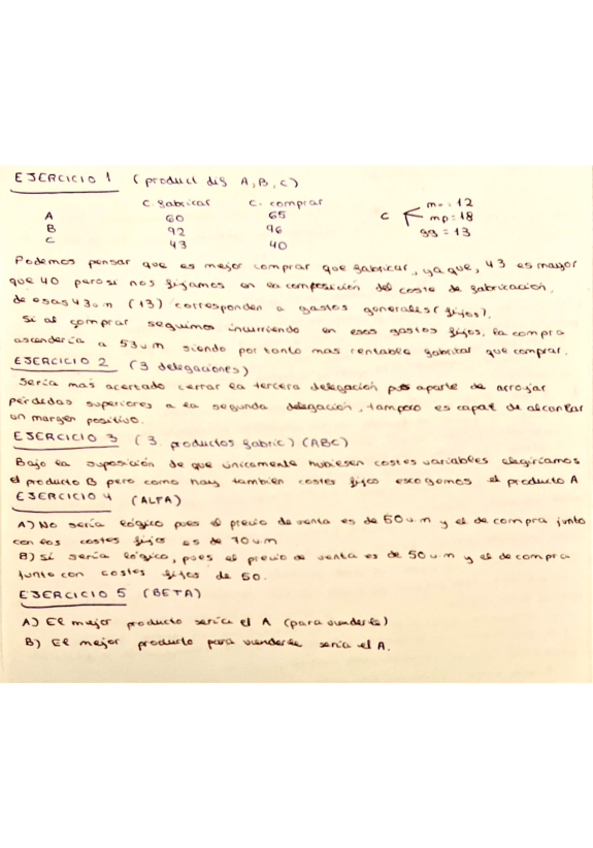 EJERCICIO 1 (product dis A, B, C)
C. fabricar C. comprar
A 60 65
B 92 96
C 43 40
C mo: 12
mp: 18
gg = 13
Podemos pensar que es mejor comprar que fabricar, ya que, 43 es mayor
que 40 pero si nos fijamos en la composición del coste de fabricación,
de esas 43 u m (13) corresponden a gastos generales (fijos).
Si al comprar seguimos incurriendo en esos gastos fijos, la compra
ascendería a 53 u m siendo por tanto mas rentable fabricar que comprar.
EJERCICIO 2 (3 delegaciones)
Sería mas acertado cerrar la tercera delegación pues aparte de arrojar
pérdidas superiores a la segunda delegación, tampoco es capaz de alcanzar
un margen positivo.
EJERCICIO 3 (3. productos fabric) (ABC)
Bajo la suposición de que únicamente hubiesen costes variables elegiríamos
el producto B pero como hay tambien costes fijos escogemos el producto A
EJERCICIO 4 (ALFA)
A) No sería lógico pues el precio de venta es de 50 u.m y el de compra junto
con los costes fijos es de 70 u.m
B) Sí sería lógico, pues el precio de venta es de 50 u.m y el de compra
junto con costes fijos de 50.
EJERCICIO 5 (BETA)
A) El mejor producto sería el A (para venderlo)
B) El mejor producto para venderse sería el A.